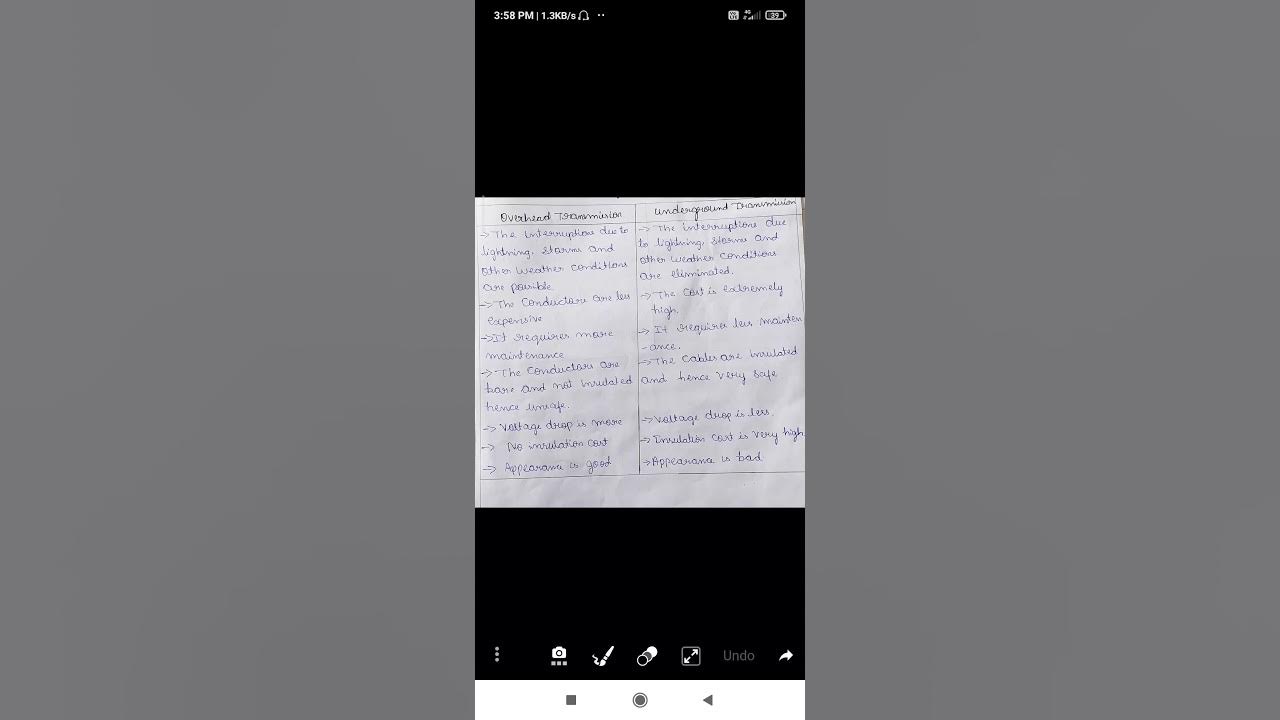 3:58 PM | 1.3KB/s
4G
39
Overhead Transmission
→ The interruptions due to
lightning, storms and
other weather conditions
are possible
→ The conductors are less
expensive
→ It requires more
maintenance
→ The conductors are
bare and not insulated
hence unsafe.
→ Voltage drop is more
→ No insulation cost
→ Appearance is good
Underground Transmission
→ The interruptions due
to lightning, storms and
other weather conditions
are eliminated.
→ The cost is extremely
high.
→ It requires less mainten
-ance.
→ The cables are insulated
and hence very safe
→ Voltage drop is less.
→ Insulation cost is very high
→ Appearance is bad
Undo